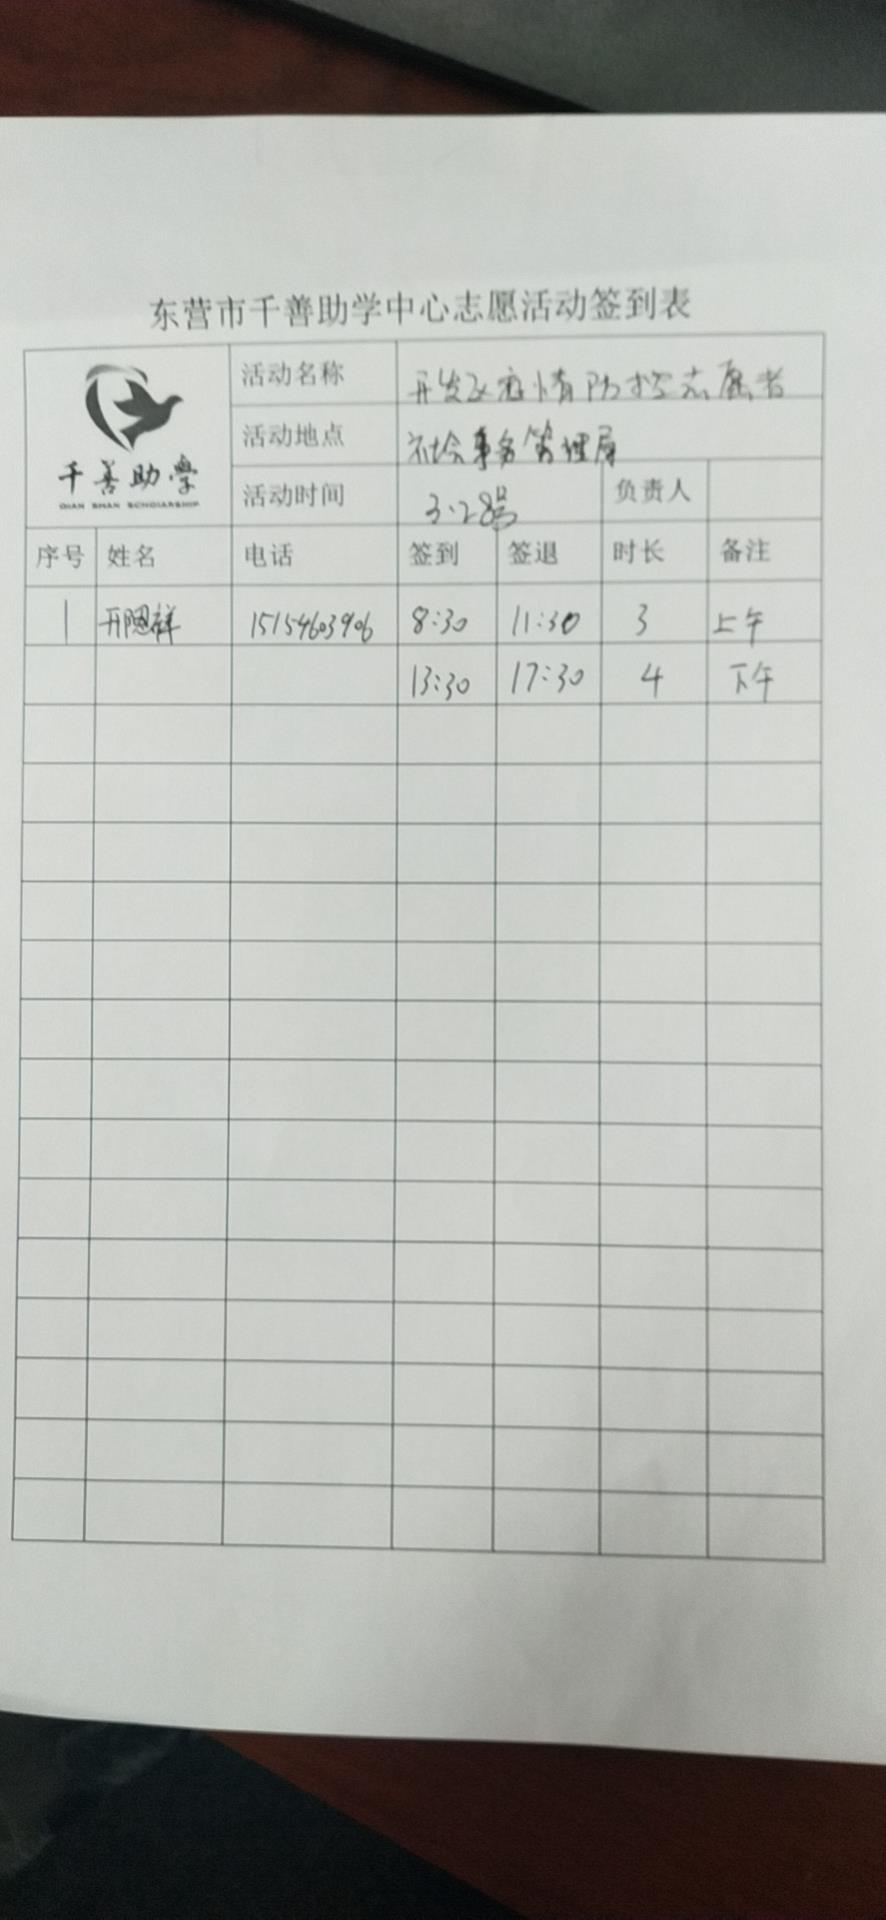 东营市千善助学中心志愿活动签到表
千善助学
QIAN SHAN SCHOLARSHIP
活动名称 开发区疫情防控志愿者
活动地点 社会事务管理局
活动时间 3.28号 负责人
序号 姓名 电话 签到 签退 时长 备注
1 邢恩祥 15154603906 8:30 11:30 3 上午
13:30 17:30 4 下午